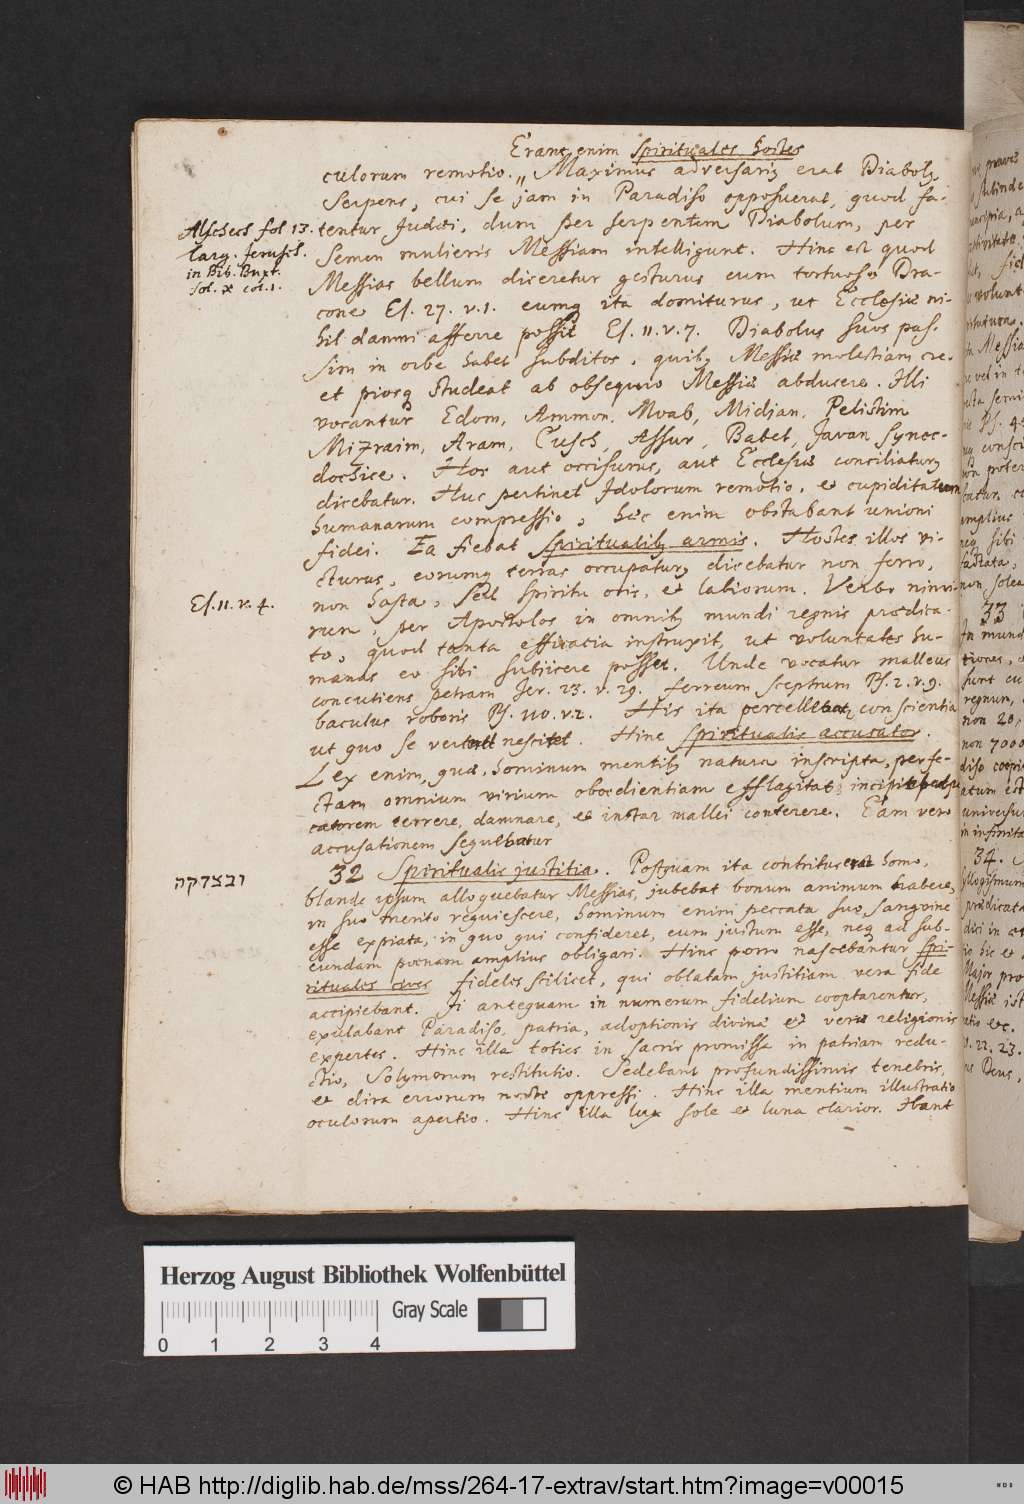 Erant enim spirituales hostes
culorum remotio. „ Maximus adversarius erat Diabolus
Serpens, cui se jam in Paradiso opposuerat, quod fa-
Alschech fol 13. tentur Judæi, dum per serpentem Diabolum, per
Targ. Jerusch. semen mulieris Messiam intelligunt. Hinc est quod
in Bib. Buxt. Messias bellum diceretur gesturus cum tortuoso Dra-
fol. x col. 1.
cone Es. 27. v. 1. eumq ita domiturus, ut Ecclesiæ ni-
hil damni afferre possit Es. 11. v. 7. Diabolus suos pas-
sim in orbe habet subditos, quibq Messiæ molestiam cre-
et piosq studeat ab obsequio Messiæ abducere. Illi
vocantur Edom, Ammon, Moab, Midian, Pelistim
Mizraim, Aram, Cusch, Assur, Babel, Javan Synec-
dochice. Hos aut occisurus, aut Ecclesiæ conciliaturq
dicebatur. Huc pertinet Idolorum remotio, et cupiditatum
humanarum compressio, hæc enim obstabant unioni
fidei. Ea fiebat spiritualibq armis. Hostes illos vi-
cturus, eorumq terras occupaturq dicebatur non ferro,
Es. 11. v. 4. non hasta, sed spiritu oris, et labiorum. Verbo nimi-
rum, per Apostolos in omnibq mundi regnis prædica-
to, quod tanta efficacia instruxit, ut voluntates hu-
manas eo sibi subijcere posset. Unde vocatur malleus
concutiens petram Jer. 23. v. 29. ferreum sceptrum Ps. 2. v. 9.
baculus roboris Ps. 110. v. 2. His ita percellebatq conscientia
ut quo se vertat nesciat. Hinc spiritualis accusator.
Lex enim, quæ hominum mentibq natura inscripta, perfe-
ctam omnium virium obœdientiam efflagitat, incipit
terrere, damnare, et instar mallei conterere. Eam vero
accusationem sequebatur
ובצדקה 32 Spiritualis justitia. Postquam ita contritus erat homo,
blande ipsum alloquebatur Messias, jubebat bonum animum habere,
in suo merito requiescere, hominum enim peccata suo sanguine
esse expiata, in quo qui confideret, eum justum esse, neq ad sub-
eundam pœnam amplius obligari. Hinc porro nascebantur spi-
rituales cives fideles scilicet, qui oblatam justitiam vera fide
accipiebant. Ii antequam in numerum fidelium cooptarentur,
exulabant Paradiso, patria, adoptionis divinæ et veræ religionis
expertes. Hinc illa toties in sacris promissa in patriam redu-
ctio, Solymorum restitutio. Sedebant profundissimis tenebris,
et dira errorum nocte oppressi. Hinc illa mentium illustratio
oculorum apertio. Hinc illa lux sole et luna clarior.
Herzog August Bibliothek Wolfenbüttel
Gray Scale
0 1 2 3 4
© HAB http://diglib.hab.de/mss/264-17-extrav/start.htm?image=v00015